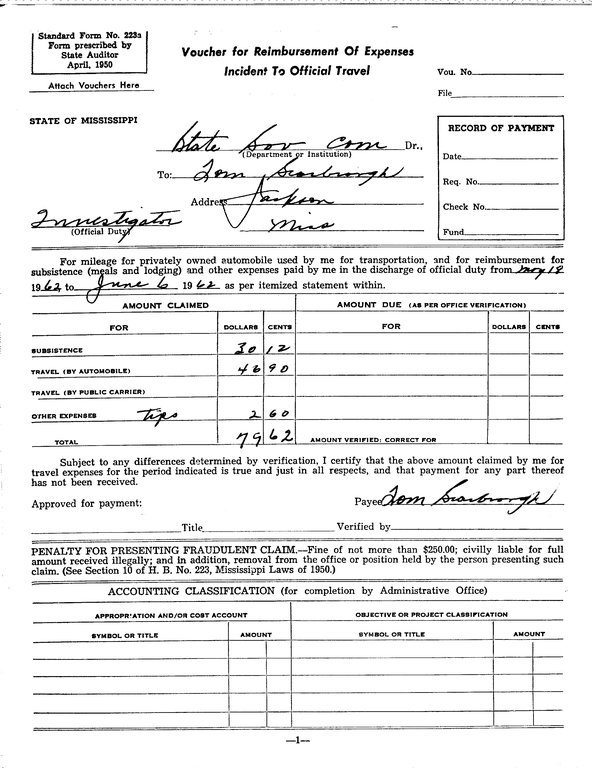 Standard Form No. 223a
Form prescribed by
State Auditor
April, 1950
Attach Vouchers Here
Voucher for Reimbursement Of Expenses
Incident To Official Travel
Vou. No.
File
STATE OF MISSISSIPPI
State Sov Com Dr.,
(Department or Institution)
To: Tom Scarbrough
Address Jackson
Miss
Investigator
(Official Duty)
RECORD OF PAYMENT
Date
Req. No.
Check No.
Fund
For mileage for privately owned automobile used by me for transportation, and for reimbursement for
subsistence (meals and lodging) and other expenses paid by me in the discharge of official duty from May 18
1962 to June 6 1962 as per itemized statement within.
AMOUNT CLAIMED
AMOUNT DUE (AS PER OFFICE VERIFICATION)
FOR DOLLARS CENTS FOR DOLLARS CENTS
SUBSISTENCE 30 12
TRAVEL (BY AUTOMOBILE) 46 90
TRAVEL (BY PUBLIC CARRIER)
OTHER EXPENSES tips 2 60
TOTAL 79 62 AMOUNT VERIFIED: CORRECT FOR
Subject to any differences determined by verification, I certify that the above amount claimed by me for
travel expenses for the period indicated is true and just in all respects, and that payment for any part thereof
has not been received.
Approved for payment: Payee Tom Scarbrough
Title Verified by
PENALTY FOR PRESENTING FRAUDULENT CLAIM.—Fine of not more than $250.00; civilly liable for full
amount received illegally; and in addition, removal from the office or position held by the person presenting such
claim. (See Section 10 of H. B. No. 223, Mississippi Laws of 1950.)
ACCOUNTING CLASSIFICATION (for completion by Administrative Office)
APPROPRIATION AND/OR COST ACCOUNT OBJECTIVE OR PROJECT CLASSIFICATION
SYMBOL OR TITLE AMOUNT SYMBOL OR TITLE AMOUNT
—1—